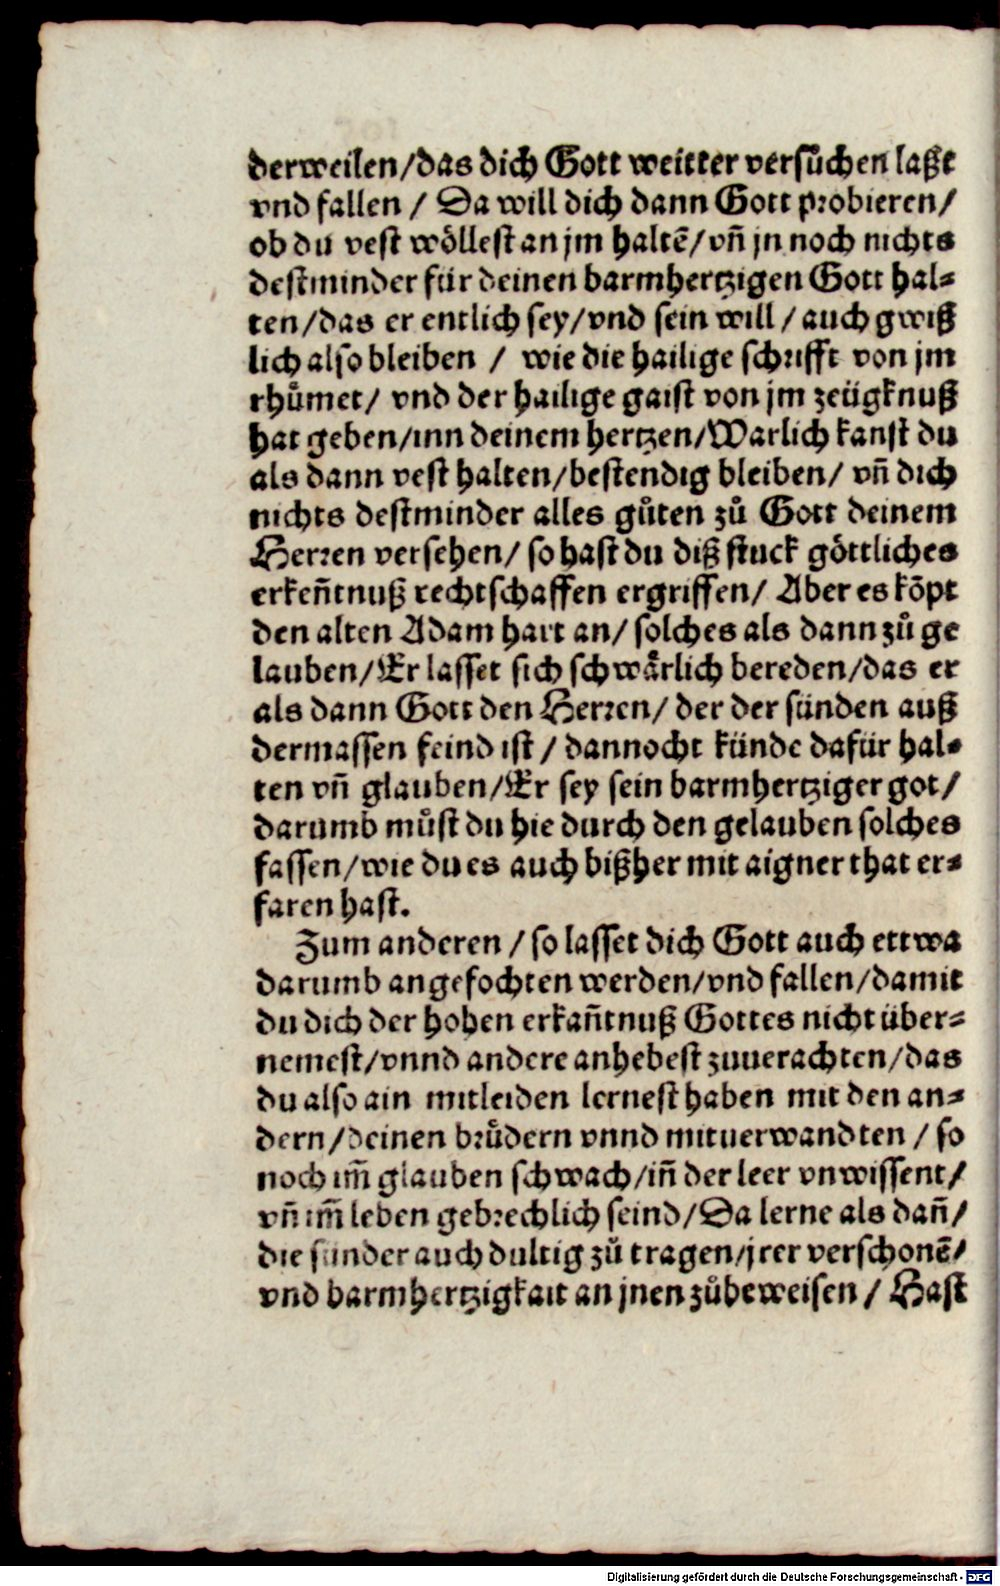 derweilen/das dich Gott weitter versůchen laßt
vnd fallen / Da will dich dann Gott probieren/
ob du vest wöllest an jm haltẽ/vñ jn noch nichts
destminder für deinen barmhertzigen Gott hal⸗
ten/das er entlich sey/vnd sein will / auch gwiß
lich also bleiben / wie die hailige schrifft von jm
rhůmet/ vnd der hailige gaist von jm zeügknuß
hat geben/inn deinem hertzen/Warlich kanst du
als dann vest halten/bestendig bleiben/ vñ dich
nichts destminder alles gůten zů Gott deinem
Herren versehen/ so hast du diß stuck göttliches
erkeñtnuß rechtschaffen ergriffen/ Aber es kõpt
den alten Adam hart an/ solches als dann zů ge
lauben/Er lasset sich schwaͤrlich bereden/das er
als dann Gott den Herren/ der der sünden auß
dermassen feind ist / dannocht künde dafür hal⸗
ten vñ glauben/Er sey sein barmhertziger got/
darumb můst du hie durch den gelauben solches
fassen/wie du es auch bißher mit aigner that er⸗
faren hast.
Zum anderen / so lasset dich Gott auch ettwa
darumb angefochten werden/vnd fallen/damit
du dich der hohen erkañtnuß Gottes nicht über⸗
nemest/vnnd andere anhebest zuuerachten/das
du also ain mitleiden lernest haben mit den an⸗
dern/deinen brůdern vnnd mituerwandten / so
noch im̃ glauben schwach/iñ der leer vnwissent/
vñ im̃ leben gebrechlich seind/Da lerne als dañ/
die sünder auch dultig zů tragen/jrer verschonẽ/
vnd barmhertzigkait an jnen zůbeweisen / Hast
Digitalisierung gefördert durch die Deutsche Forschungsgemeinschaft - DFG